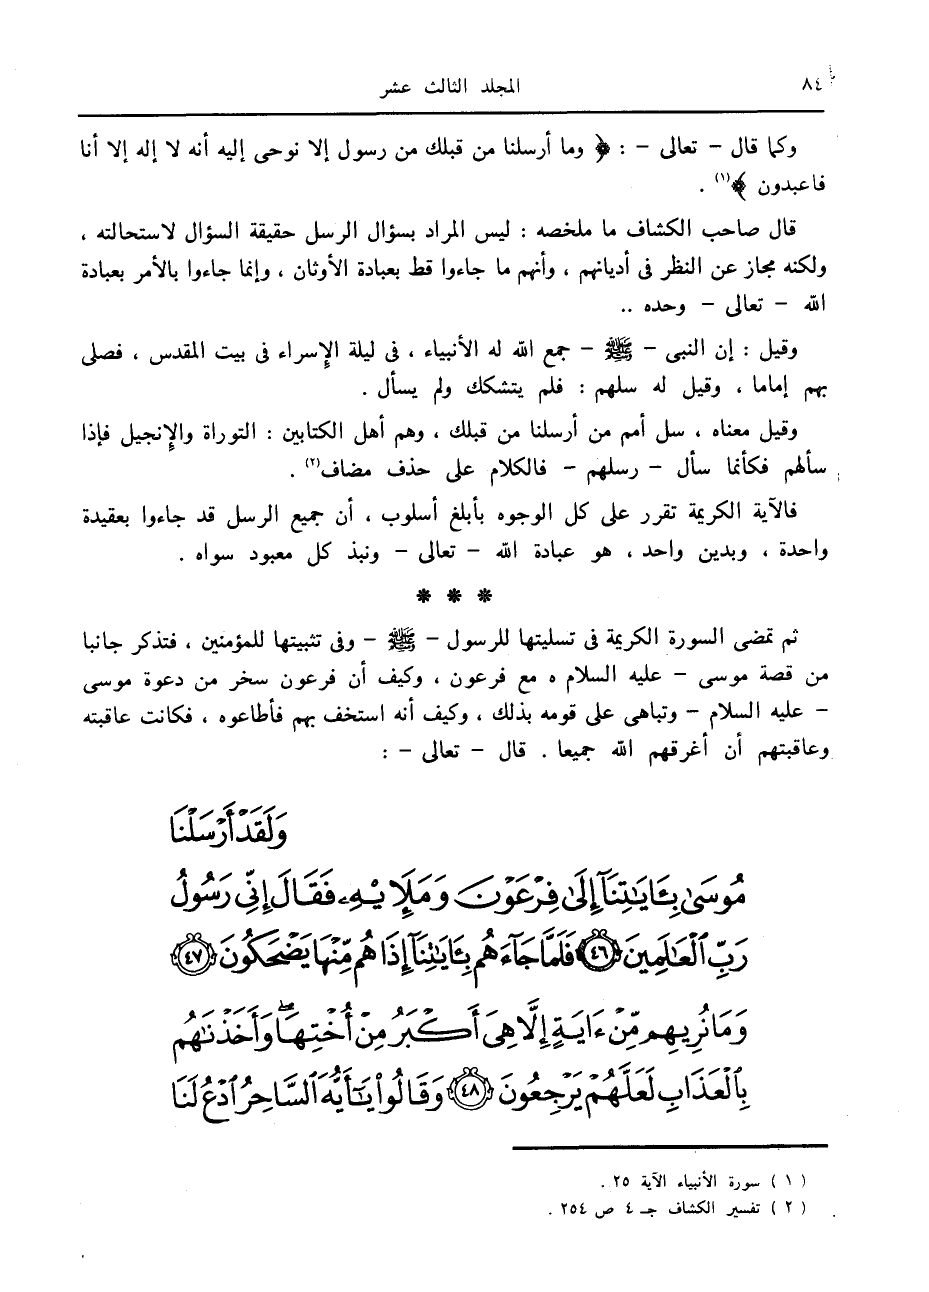 ٨٤ المجلد الثالث عشر
وكما قال – تعالى – : ﴿ وما أرسلنا من قبلك من رسول إلا نوحى إليه أنه لا إله إلا أنا
فاعبدون ﴾(١) .
قال صاحب الكشاف ما ملخصه : ليس المراد بسؤال الرسل حقيقة السؤال لاستحالته ،
ولكنه مجاز عن النظر فى أديانهم ، وأنهم ما جاءوا قط بعبادة الأوثان ، وإنما جاءوا بالأمر بعبادة
الله – تعالى – وحده ..
وقيل : إن النبى – ﷺ – جمع الله له الأنبياء ، فى ليلة الإسراء فى بيت المقدس ، فصلى
بهم إماما ، وقيل له سلهم : فلم يتشكك ولم يسأل .
وقيل معناه ، سل أمم من أرسلنا من قبلك ، وهم أهل الكتابين : التوراة والإنجيل فإذا
سألهم فكأنما سأل – رسلهم – فالكلام على حذف مضاف(٢) .
فالآية الكريمة تقرر على كل الوجوه بأبلغ أسلوب ، أن جميع الرسل قد جاءوا بعقيدة
واحدة ، وبدين واحد ، هو عبادة الله – تعالى – ونبذ كل معبود سواه .
* * *
ثم تمضى السورة الكريمة فى تسليتها للرسول – ﷺ – وفى تثبيتها للمؤمنين ، فتذكر جانبا
من قصة موسى – عليه السلام ه مع فرعون ، وكيف أن فرعون سخر من دعوة موسى
– عليه السلام – وتباهى على قومه بذلك ، وكيف أنه استخف بهم فأطاعوه ، فكانت عاقبته
وعاقبتهم أن أغرقهم الله جميعا . قال – تعالى – :
وَلَقَدْ أَرْسَلْنَا
مُوسَىٰ بِـَٔايَـٰتِنَآ إِلَىٰ فِرْعَوْنَ وَمَلَإِيْهِۦ فَقَالَ إِنِّى رَسُولُ
رَبِّ ٱلْعَـٰلَمِينَ ٤٦ فَلَمَّا جَآءَهُم بِـَٔايَـٰتِنَآ إِذَا هُم مِّنْهَا يَضْحَكُونَ ٤٧
وَمَا نُرِيهِم مِّنْ ءَايَةٍ إِلَّا هِىَ أَكْبَرُ مِنْ أُخْتِهَا ۖ وَأَخَذْنَـٰهُم
بِٱلْعَذَابِ لَعَلَّهُمْ يَرْجِعُونَ ٤٨ وَقَالُوا۟ يَـٰٓأَيُّهَ ٱلسَّاحِرُ ٱدْعُ لَنَا
( ١ ) سورة الأنبياء الآية ٢٥ .
( ٢ ) تفسير الكشاف جـ ٤ ص ٢٥٤ .